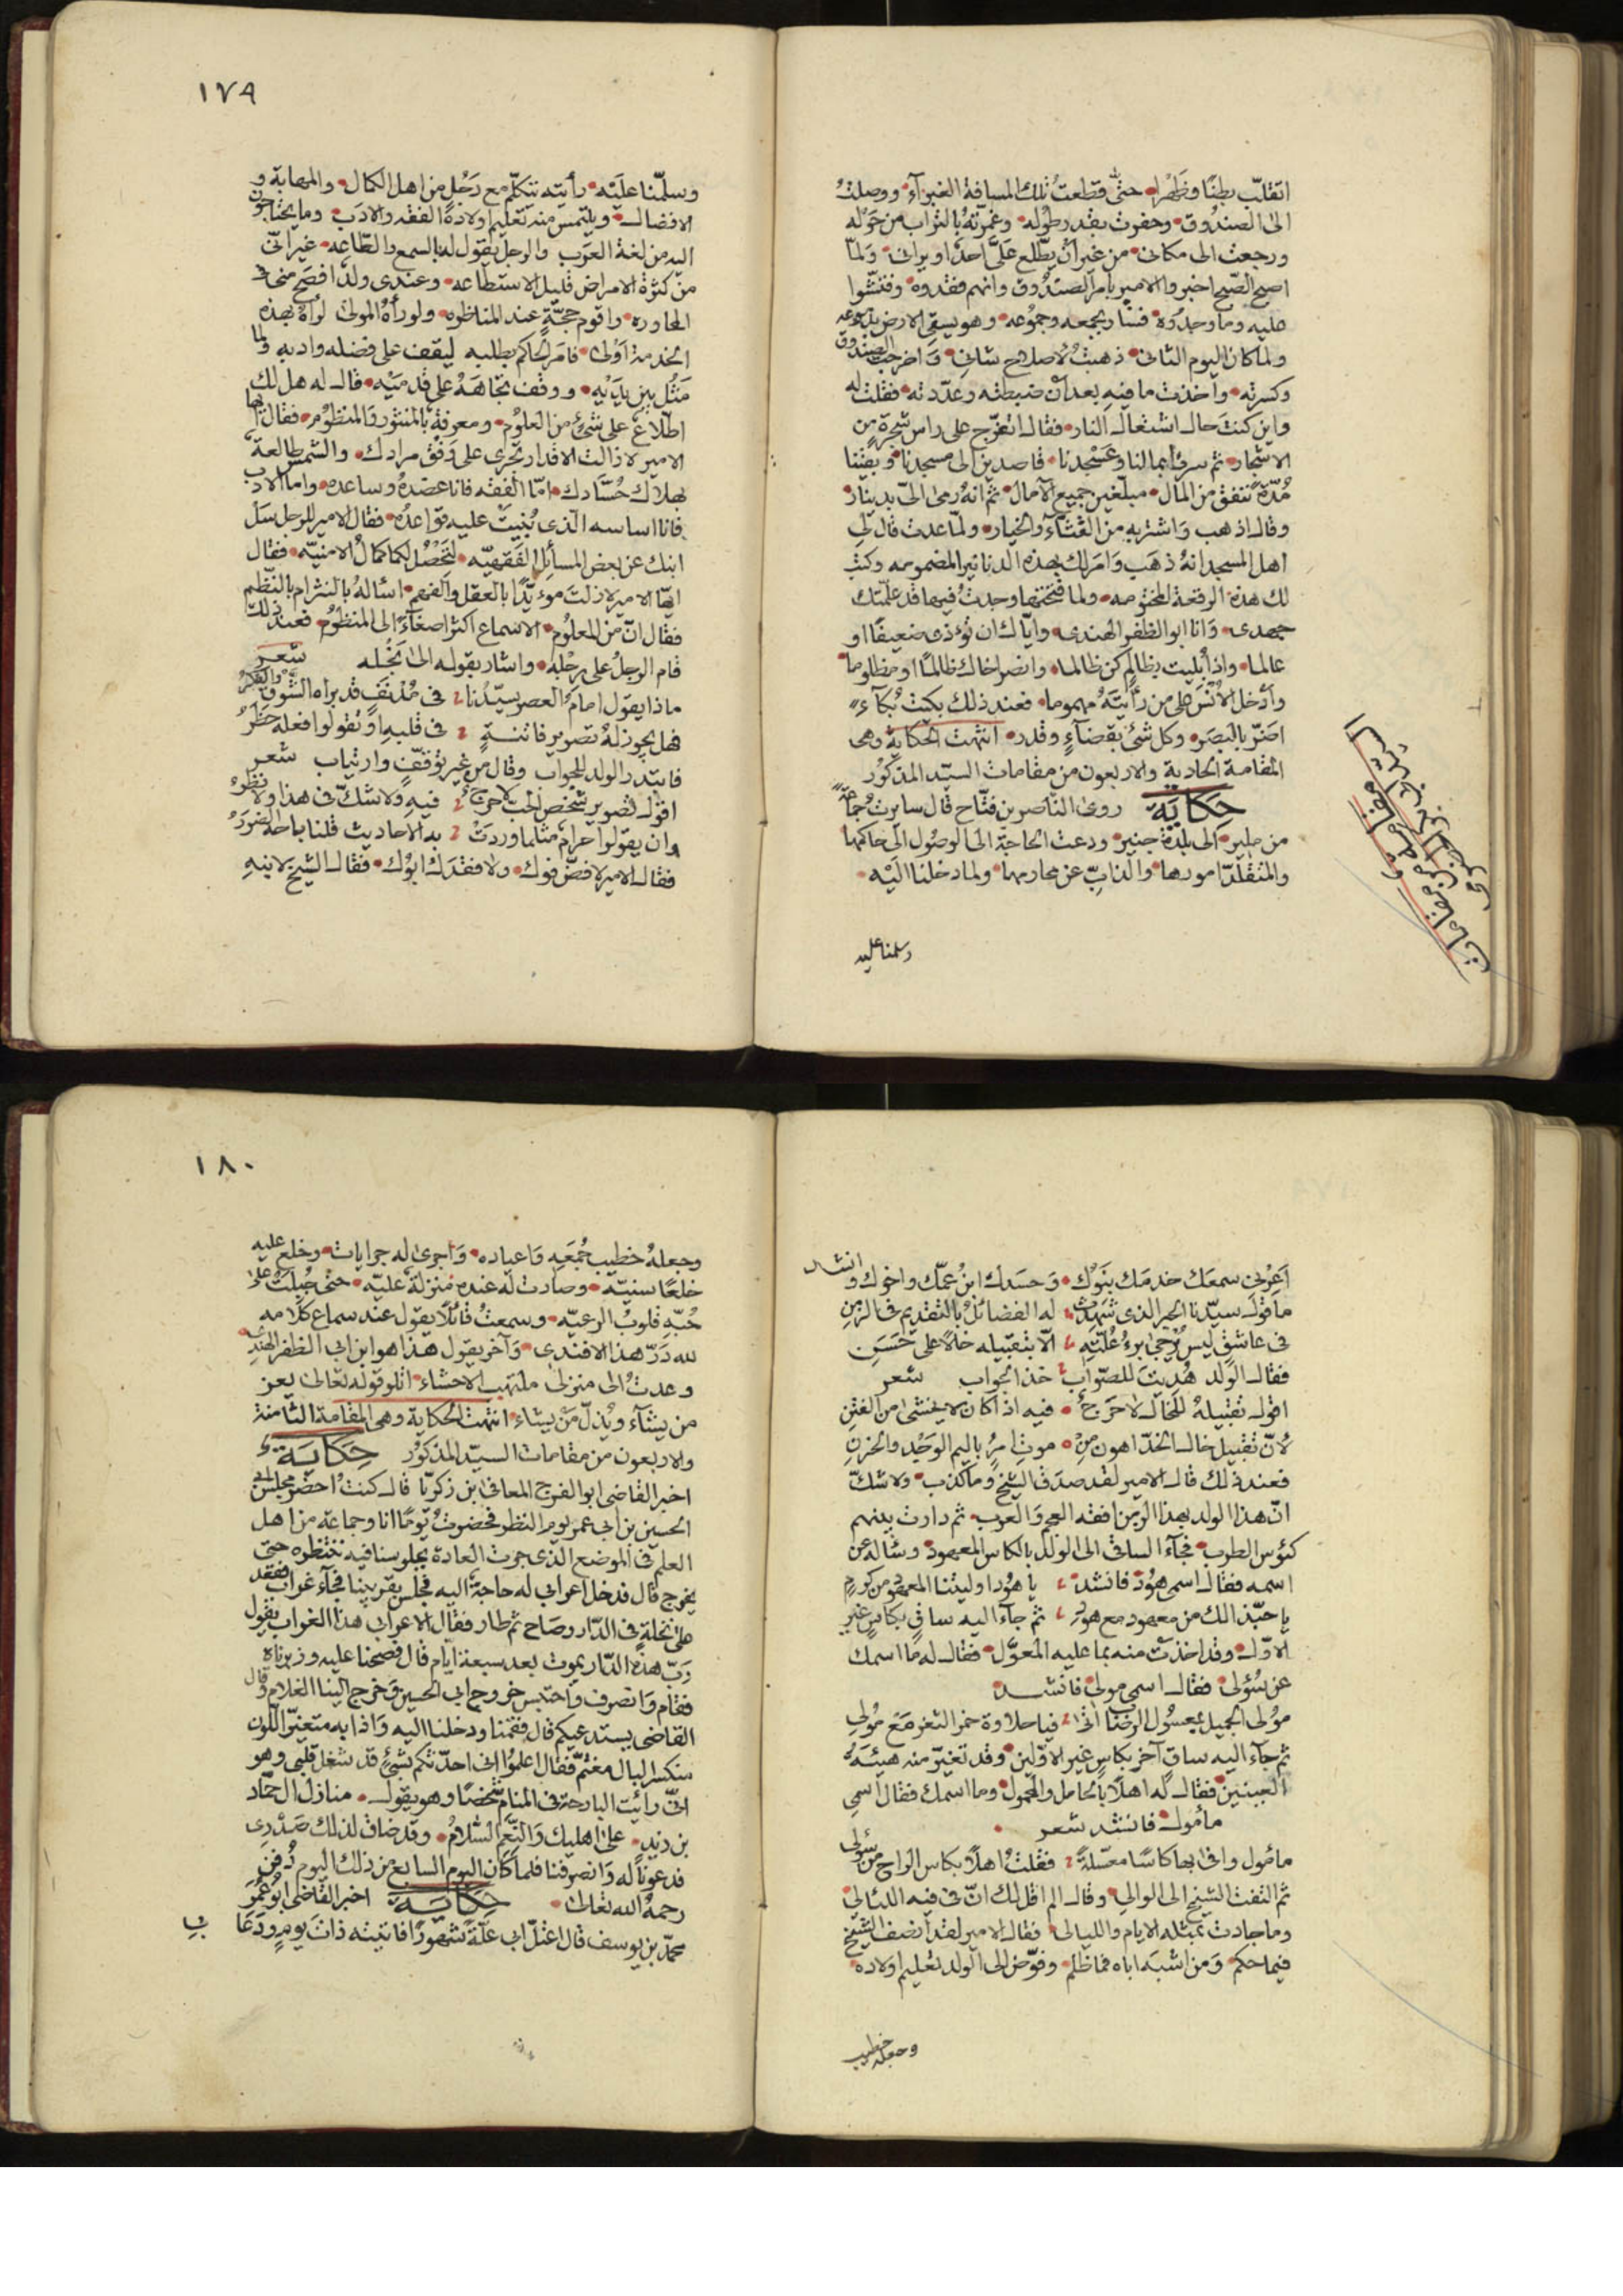 اتقلّب بطنًا وظهرا حتّى قطعت تلك المسافة الغبرآء ووصلتُ
الى الصندوق وحفرت بقدر طوله وغمرته بالتراب من حوله
ورجعت الى مكانى من غير ان يطّلع علىّ احدًا ويرانى ولمّا
اصبح الصّبح اخبروا الامير بامر الصندوق وانهم فقدوه وفتشوا
عليه وما وجدوه فسار بجمعه وجموعه وهو يسقى الارض بدموعه
ولما كان اليوم الثانى ذهبتُ لاصلاح شانى واخرجت الصندوق
وكسرته واخذت ما فيه بعد ان ضبطته وعدّدته فقلت له
واين كنت حال اشتغال النار فقال اتفرّج على راس شجرة من
الاشجار ثم سرنا بمالنا وعسجدنا قاصدين الى مسجدنا وبقينا
مُدّةً ننفق من المال مبلّغين جميع الآمال ثمّ انه رمى الىّ بدينار
وقال اذهب واشتر به من القثآء والخيار ولمّا عدت قال لى
اهل المسجد انهُ ذهب وامر لك بهذه الدنانير المضمومه وكتب
لك هذه الرقعة المختومه ولما فتحتها وجدتُ فيها قد علّمتك
جهدى وانا ابو الظفر الهندى وايّاك ان تؤذى ضعيفًا او
عالما واذا بُليت بظالم كن ظالما وانصر اخاك ظالمًا او مظلوما
وادخل الأُنس على من رأيتَهُ مهموما فعند ذلك بكيت بُكآءً
اضرّ بالبصر وكل شئ بقضآءٍ وقدر انتهت الحكاية وهى
المقامة الحادية والاربعون من مقامات السيّد المذكور
حكاية روى الناصر بن فتّاح قال سايرتُ جماعةً
من الى بلدة ودعت الحاجة الى الوصُول الى حاكمها
والمتقلّد امورها والذابّ عن محارمها ولما دخلنا اليه
وسلمنا عليه
١٧٩
وسلّمنا عليه رأيته يتكلّم مع رَجُلٍ من اهل الكمال والمهابة و
الافضال ويلتمس منه تعليم اولاده الفقه والادب وما يحتاجون
اليه من لغة العرب والرجل يقول له بالسمع والطّاعه غير انّى
من كثرة الامراض قليل الاستطاعه وعندى ولدًا افصح منى فى
المحاوره واقوم حجّةٍ عند المناظره ولو رأهُ المولى لرأهُ بهذه
الخدمة اَوْلى فامر الحاكم بطلبه ليقف على فضله وادبه ولما
مَثُل بين يديه ووقف تجاهه على قدميه قال له هل لك
اطلاعٌ على شئ من العلوم ومعرفةٌ بالمنثور والمنظوم فقال ايّها
الامير لا زالت الاقدار تجرى على وفق مرادك والشمس طالعة
بهلاك حُسّادك امّا الفقه فانا عضده وساعده واما الادب
فانا اساسه الّذى بُنيت عليه قواعدُه فقال الامير للرجل سل
ابنك عن بعض المسائل الفقهيّه لتحصُل لكما كمالُ الامنيّه فقال
ايّها الامير لا زلت مؤيّدًا بالعقل والفهم اسالهُ بالنثر ام بالنّظم
فقال انّ من المعلوم الاسماع اكثر اصغآءً الى المنظوم فعند ذلك
قام الرجلُ على رجله واشار بقوله الى نجله شعر
ماذا يقول امام العصر سيّدنا فى مُدنفٍ قد براه الشوق والفكرُ
فهل يجوز لهُ تصوير فاتنةٍ فى قلبهِ او تقولوا فعله حظرُ
فابتدر الولد للجواب وقال من غير توقّفٍ وارتياب شعر
اقول تصوير شخص الحبّ لا حرجٌ فيه ولا شكّ فى هذا ولا نظرُ
وان يقولوا حرام مثلما وردت به الاحاديث قلنا باحة الضررُ
فقال الامير لا فضّ فوك ولا فقدك ابوك فقال الشيخ لابنهِ
اَعِرْنى سمعك خدمك بنوك وحسدك ابنُ عمّك واخوك وانشد
ما قول سيّدنا الحبر الذى شهدت له الفضائلُ بالتقديم فى الزمنِ
فى عاشقٍ ليس يُرجى برءُ عُلّتِهِ الّا بتقبيله خالًا على حَسَنِ
فقال الولد هُديتَ للصّواب خذ الجواب شعر
اقول تقبيلهُ للخال لا حرجٌ فيه اذا كان لا يخشى من الفتنِ
لأنّ تقبيل خال الخدّ اهون مِن موتِ امرُءٍ باليم الوجد والحزنِ
فعند ذلك قال الامير لقد صدق الشيخ وما كذب ولا شكّ
انّ هذا الولد بهذا الزمن افقه العجم والعرب ثم دارت بينهم
كئوس الطرب فجآء الساقى الى الولد بالكاس المعهود وسأله عن
اسمه فقال اسمى هُود فانشد
يا حبّذا لك من معهود مع هود ثم جآء اليه ساقٍ بكاسٍ غير
الاوّل وقد اخذت منه بما عليه المعوّل فقال له ما اسمك
عن سُؤلى فقال اسمى مولى فانشد
مَولى الجميل بمعسول الرضاب اتى فيا حلاوة خمر الثغر مَعَ مُولى
ثم جآء اليه ساقٍ آخر بكاسٍ غير الاوّلين وقد تغيّر منه هيئةُ
الجبينين فقال لهُ اهلًا بالحامل والمحمول وما اسمك فقال اسمى
مأمول فانشد شعر
مأمول وافى بها كاسًا معسّلةً فقلتُ اهلًا بكاس الراح من سُولى
ثم التفت الشيخ الى الوالى وقال الم اقل لك انّ فى فيه اللئالى
وما جادت بمثله الايام والليالى فقال الامير لقد انصف الشيخ
فيما حكم ومن اشبه اباه فما ظلم وفوّض الى الولد تعليم اولاده
وجعله خطيب
١٨٠
وجعلهُ خطيب جُمَعِه واعياده واجرى له جرايات وخلع عليه
خلعًا سنيّه وصارت له عنده منزلة عليّه حتى جُبلت على
حُبّهِ قلوبُ الرعيّه وسمعتُ قائلًا يقول عند سماع كلامه
لله دَرّ هذا الافندى وآخر يقول هذا هو ابن ابى الظفر الهندى
وعدتُ الى منزلى ملتهب الاحشاء اتلو قوله تعالى يعز
من يشآء ويُذلّ من يشاء انتهت الحكاية وهى المقامة الثامنة
والاربعون من مقامات السيّد المذكور حكاية
اخبر القاضى ابو الفرج المعافى ابن زكريّا قال كنتُ احضر مجلس ابى
الحسين بن ابى عمر يوم النظر فحضرتُ يومًا انا وجماعة من اهل
العلم فى الموضع الذى جرت العادة بجلوسنا فيه ننتظره حتى
يخرج قال فدخل اعرابى له حاجة اليه فجلس بقربينا فجآء غراب فقعد
على نخلةٍ فى الدّار وصاح ثم طار فقال الاعرابى هذا الغراب يقول
رَبّ هذه الدّار يموت بعد سبعة ايّام قال فصحنا عليه وزبرناه
فقام وانصرف واحتبس خروج ابى الحسين وخرج الينا الغلام وقال
القاضى يستدعيكم قال فقمنا ودخلنا اليه واذا به متغيّر اللّون
منكسر البال مغتمّ فقال اعلموا انى احدّثكم بشئٍ قد شغل قلبى وهو
انّى رأيت البارحة فى المنام شخصًا وهو يقول منازل ال حمّاد
بن زيد على اهليك والنِّعَم السّلامُ وقد ضاق لذلك صدرى
فدعونا له وانصرفنا فلما كان اليوم السابع من ذلك اليوم دُفن
رحمهُ الله تعالى حكاية اخبر القاضى ابو عُمر
محمّد بن يوسف قال اعتلّ ابى علّةً شهورًا فانتبه ذات يومٍ ودَعَا بى